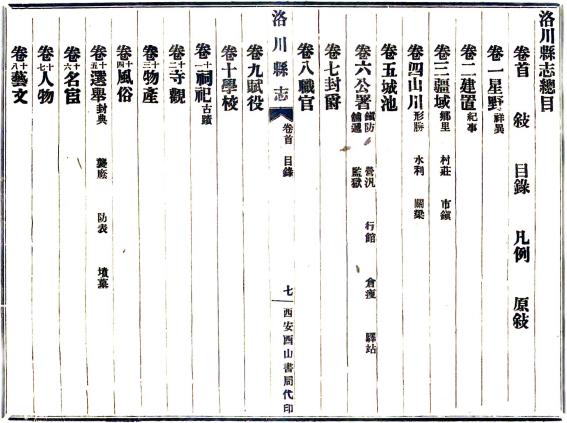 洛川縣志總目
卷首 敍 目錄 凡例 原敍
卷一星野 祥異
卷二建置 紀事
卷三疆域 鄉里 村莊 市鎮
卷四山川 形勝 水利 關梁
卷五城池
卷六公署 鎮防 營汛 行館 倉廒 驛站 舖遞 監獄
卷七封爵
卷八職官
洛川縣志 卷首 目錄 七 西安酉山書局代印
卷九賦役
卷十學校
卷十一祠祀 古蹟
卷十二寺觀
卷十三物產
卷十四風俗
卷十五選舉 封典 襲廕 防表 墳墓
卷十六名宦
卷十七人物
卷十八藝文